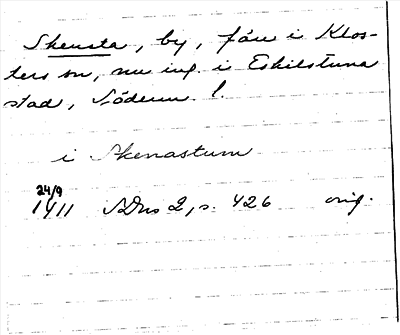 Skensta, by, förr i Klos-
ters sn, nu ing. i Eskilstuna
stad, Söderm. l.
i Skenastum
24/9
1411 SDns 2, s. 426 orig.